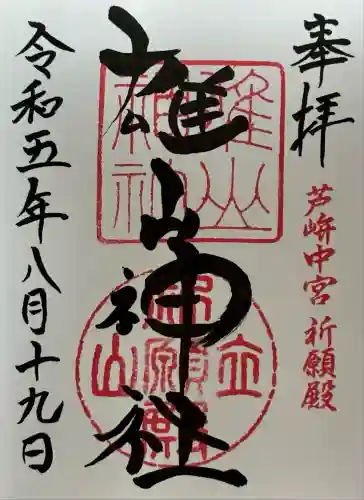 奉拝
芦峅中宮 祈願殿
雄山神社
雄山神社
立山祈願殿
令和五年八月十九日